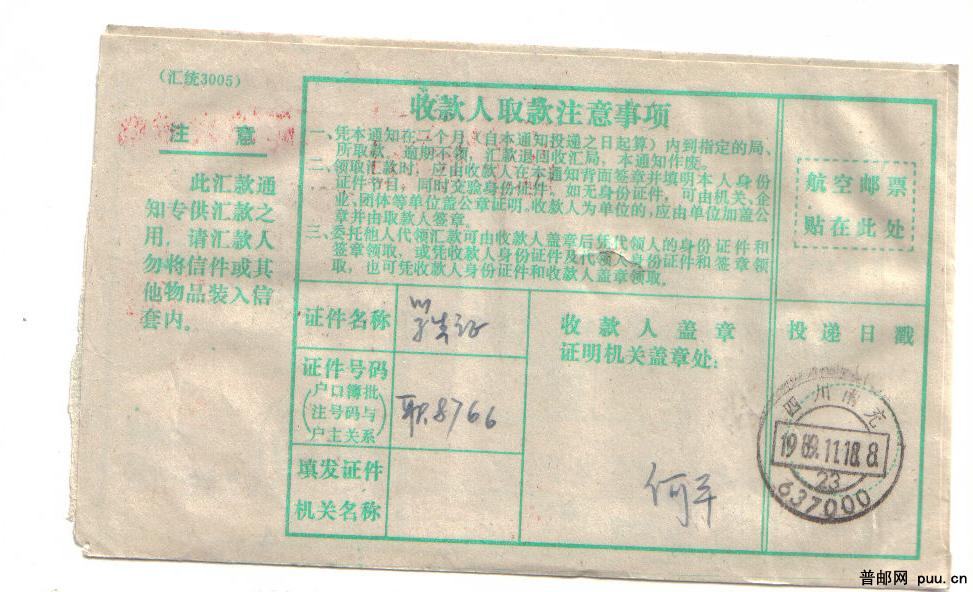 （汇统3005）
注 意
此汇款通
知专供汇款之
用，请汇款人
勿将信件或其
他物品装入信
套内。
收款人取款注意事项
一、凭本通知在二个月（自本通知投递之日起算）内到指定的局、
所取款，逾期不领，汇款退回收汇局，本通知作废。
二、领取汇款时，应由收款人在本通知背面签章并填明本人身份
证件节目，同时交验身份证件，如无身份证件，可由机关、企
业、团体等单位盖公章证明。收款人为单位的，应由单位加盖公
章并由取款人签章。
三、委托他人代领汇款可由收款人盖章后凭代领人的身份证件和
签章领取，或凭收款人身份证件及代领人身份证件和签章领
取，也可凭收款人身份证件和收款人盖章领取。
航空邮票
贴在此处
证件名称
学生证
证件号码
（户口簿批
注号码与
户主关系）
职8766
填发证件
机关名称
收款人盖章
证明机关盖章处：
何平
投递日戳
四川南充
1989.11.18.8
23
637000
普邮网 puu.cn